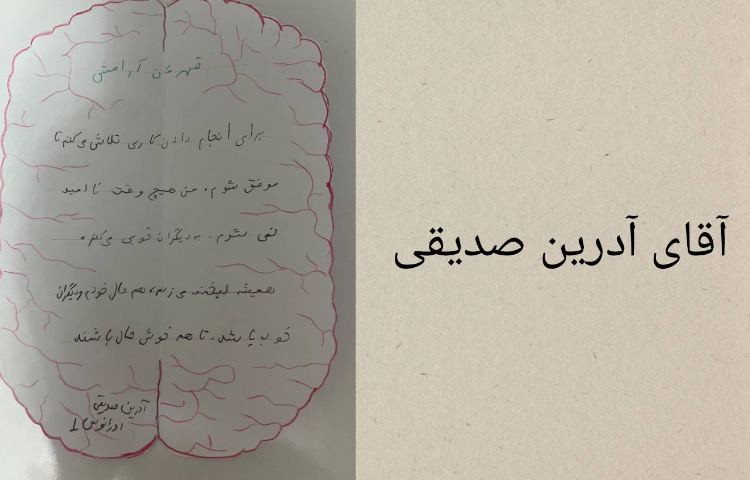 قهرمان آرامش
برای انجام دادن کاری تلاش می‌کنم تا
موفق شوم. من هیچ وقت ناامید
نمی شوم. به دیگران خوبی می‌کنم.
همیشه لبخند می زنم، هم حال خودم ودیگران
خوب باشد. تا همه خوش حال باشند
آدرین صدیقی
آقای آدرین صدیقی